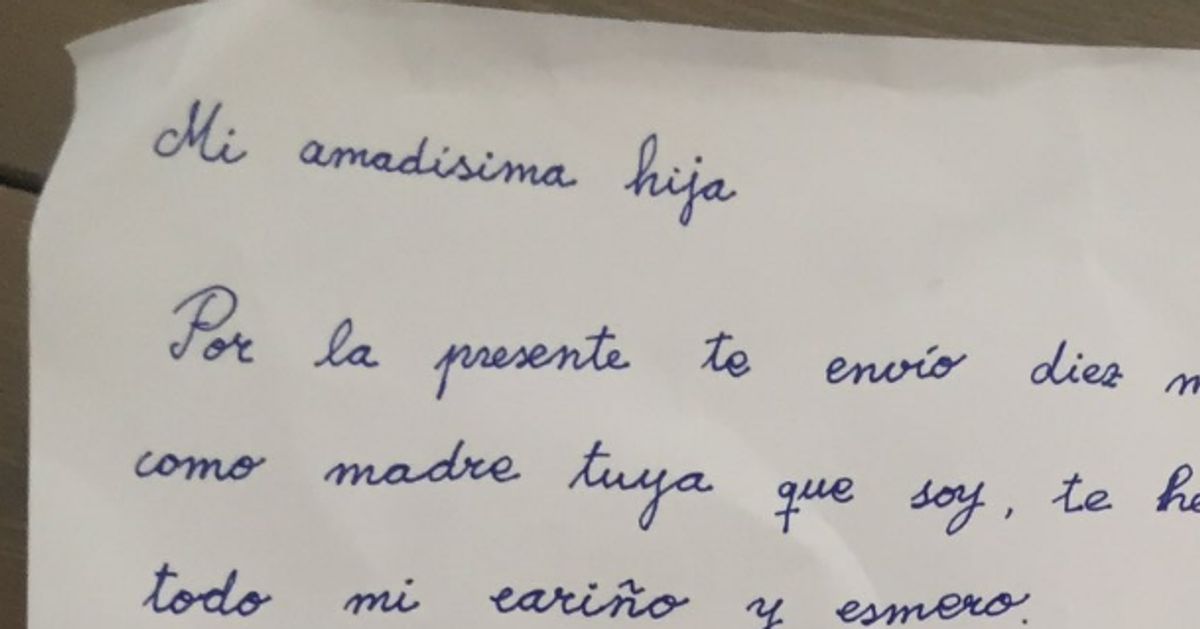 Mi amadísima hija
Por la presente te envío diez
como madre tuya que soy, te
todo mi cariño y esmero.